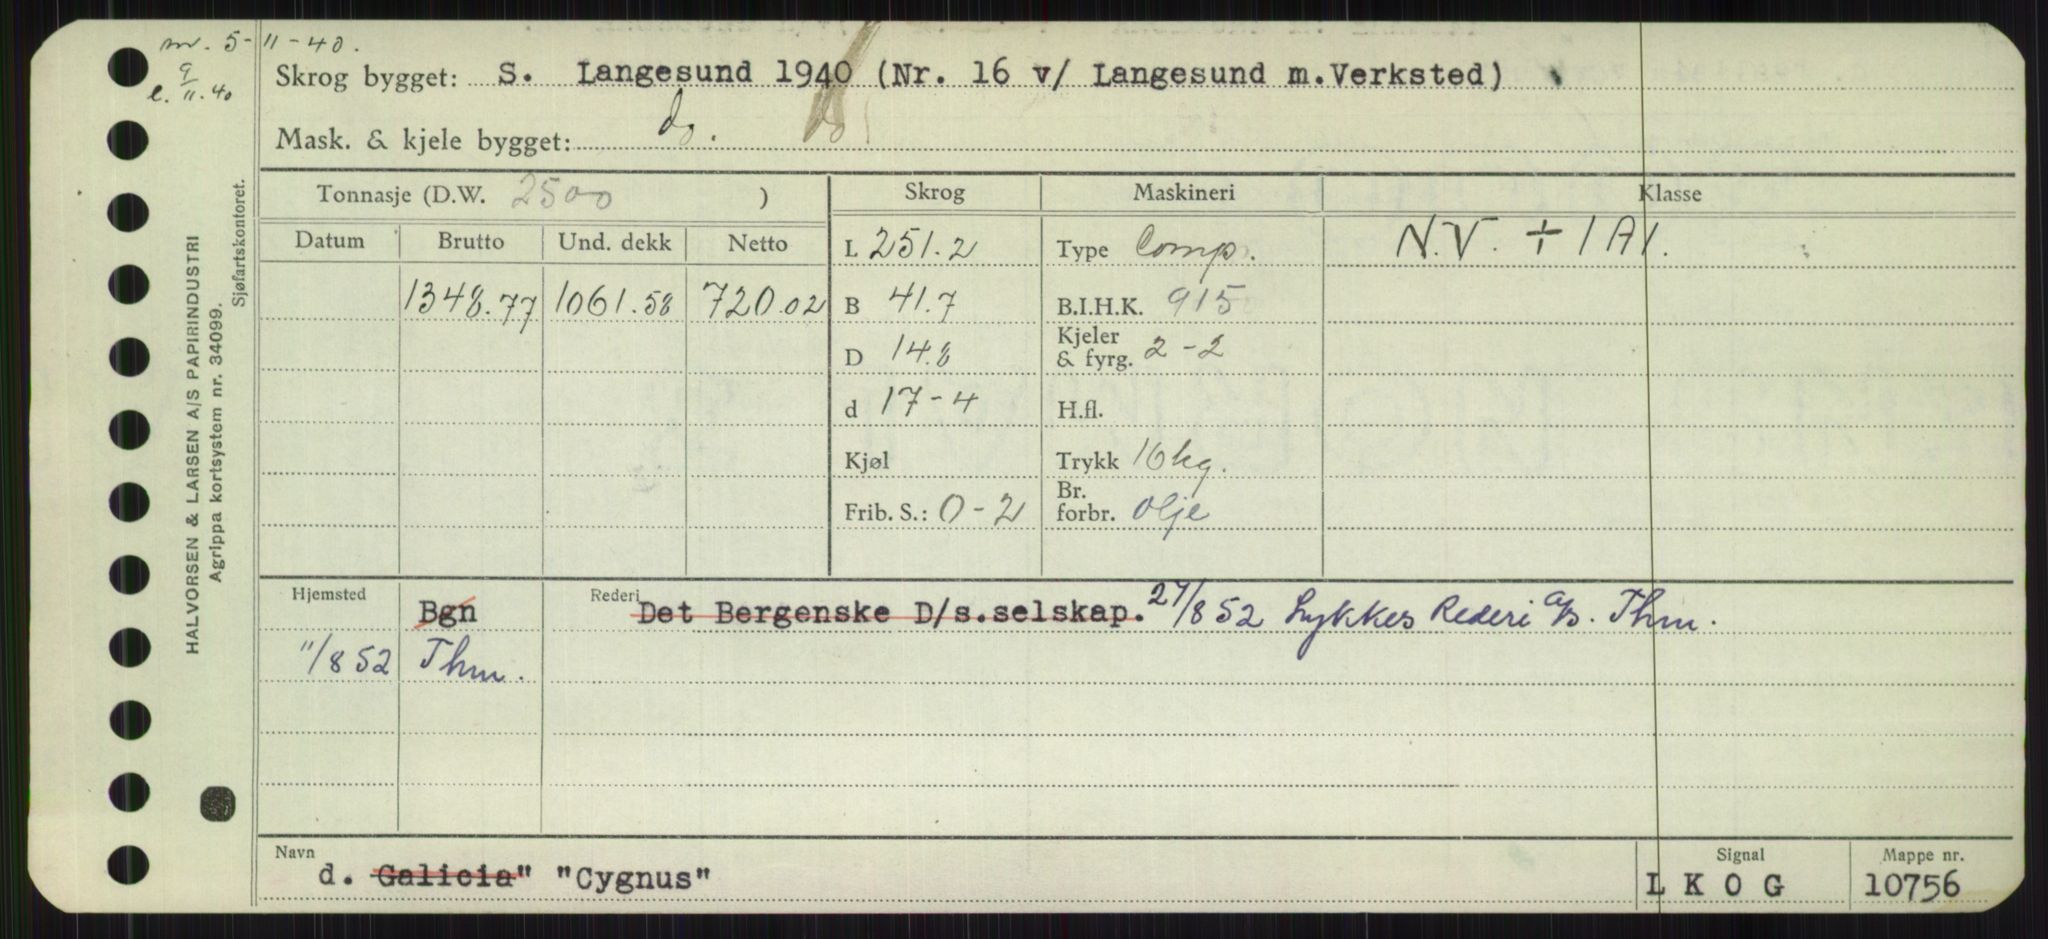 m. 5-11-40.
l. 9/11.40
Skrog bygget: S. Langesund 1940 (Nr. 16 v/ Langesund m.Verksted)
Mask. & kjele bygget: do. do
HALVORSEN & LARSEN A/S PAPIRINDUSTRI
Agrippa kortsystem nr. 34099.
Sjøfartskontoret.
Tonnasje (D.W. 2500 )
Skrog
Maskineri
Klasse
Datum Brutto Und. dekk Netto
L 251.2
Type Comp.
N.V. + 1A1.
1348.77 1061.58 720.02
B 41.7
B.I.H.K. 915
D 14.8
Kjeler
& fyrg. 2-2
d 17-4
H.fl.
Kjøl
Trykk 16 kg.
Frib. S.: 0-2
Br.
forbr. olje
Hjemsted Bgn
Rederi Det Bergenske D/s.selskap. 27/8 52 Lykkes Rederi A/S. Thm.
11/8 52 Thm.
Navn
Signal
Mappe nr.
d. Galicia" "Cygnus"
L K O G
10756